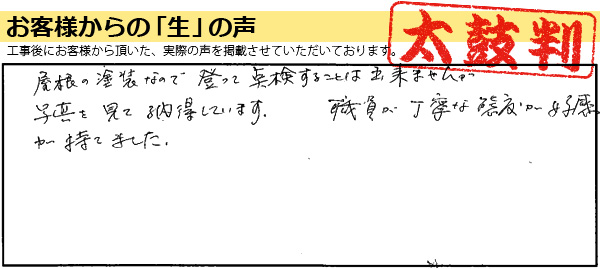 お客様からの「生」の声
工事後にお客様から頂いた、実際の声を掲載させていただいております。
太鼓判
屋根の塗装なので登って点検することは出来ませんが
写真を見て納得しています。 職員が丁寧な態度が好感
が持てました。